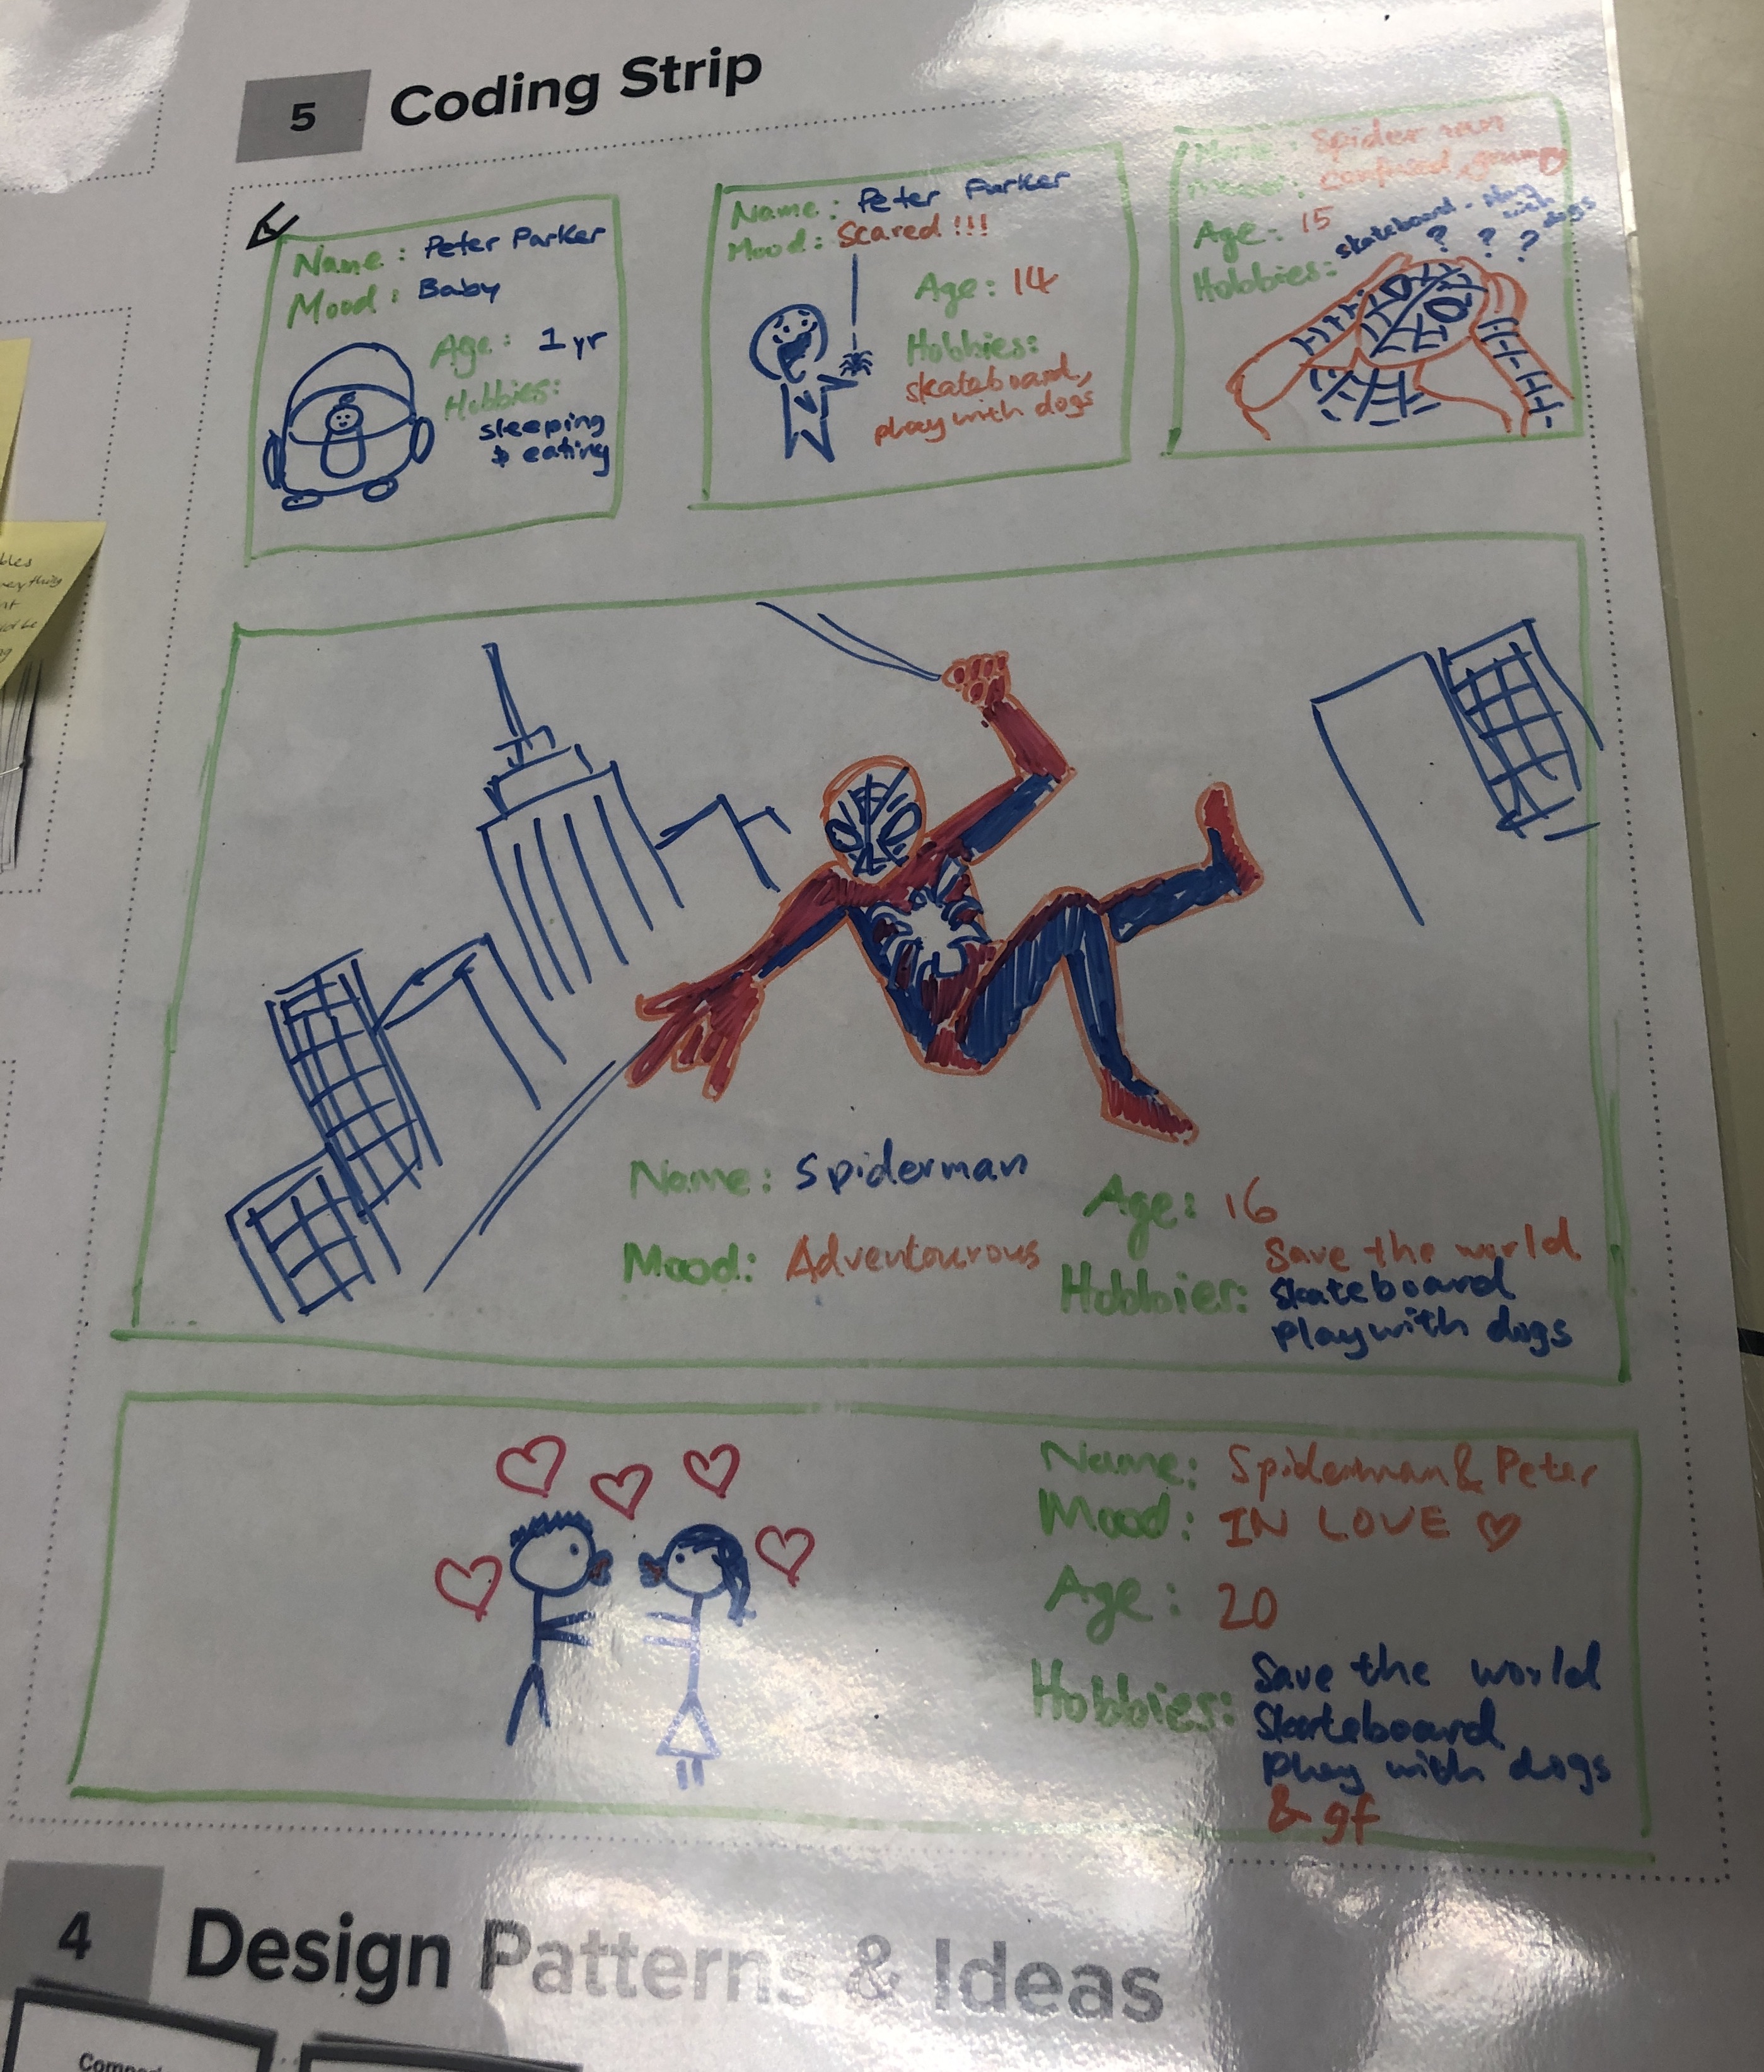 5 Coding Strip
Name: Peter Parker
Mood: Baby
Age: 1 yr
Hobbies:
sleeping
& eating
Name: Peter Parker
Mood: Scared!!!
Age: 14
Hobbies:
skateboard,
play with dogs
Name: Spider man
Mood: confused,
Age: 15
Hobbies: skateboard, play
with
dogs
? ? ?
Name: Spiderman
Mood: Adventourous
Age: 16
Save the world
Hobbies: Skateboard
Play with dogs
Name: Spiderman & Peter
Mood: IN LOVE ♡
Age: 20
Hobbies: Save the world
Skateboard
Play with dogs
& gf
4 Design Patterns & Ideas